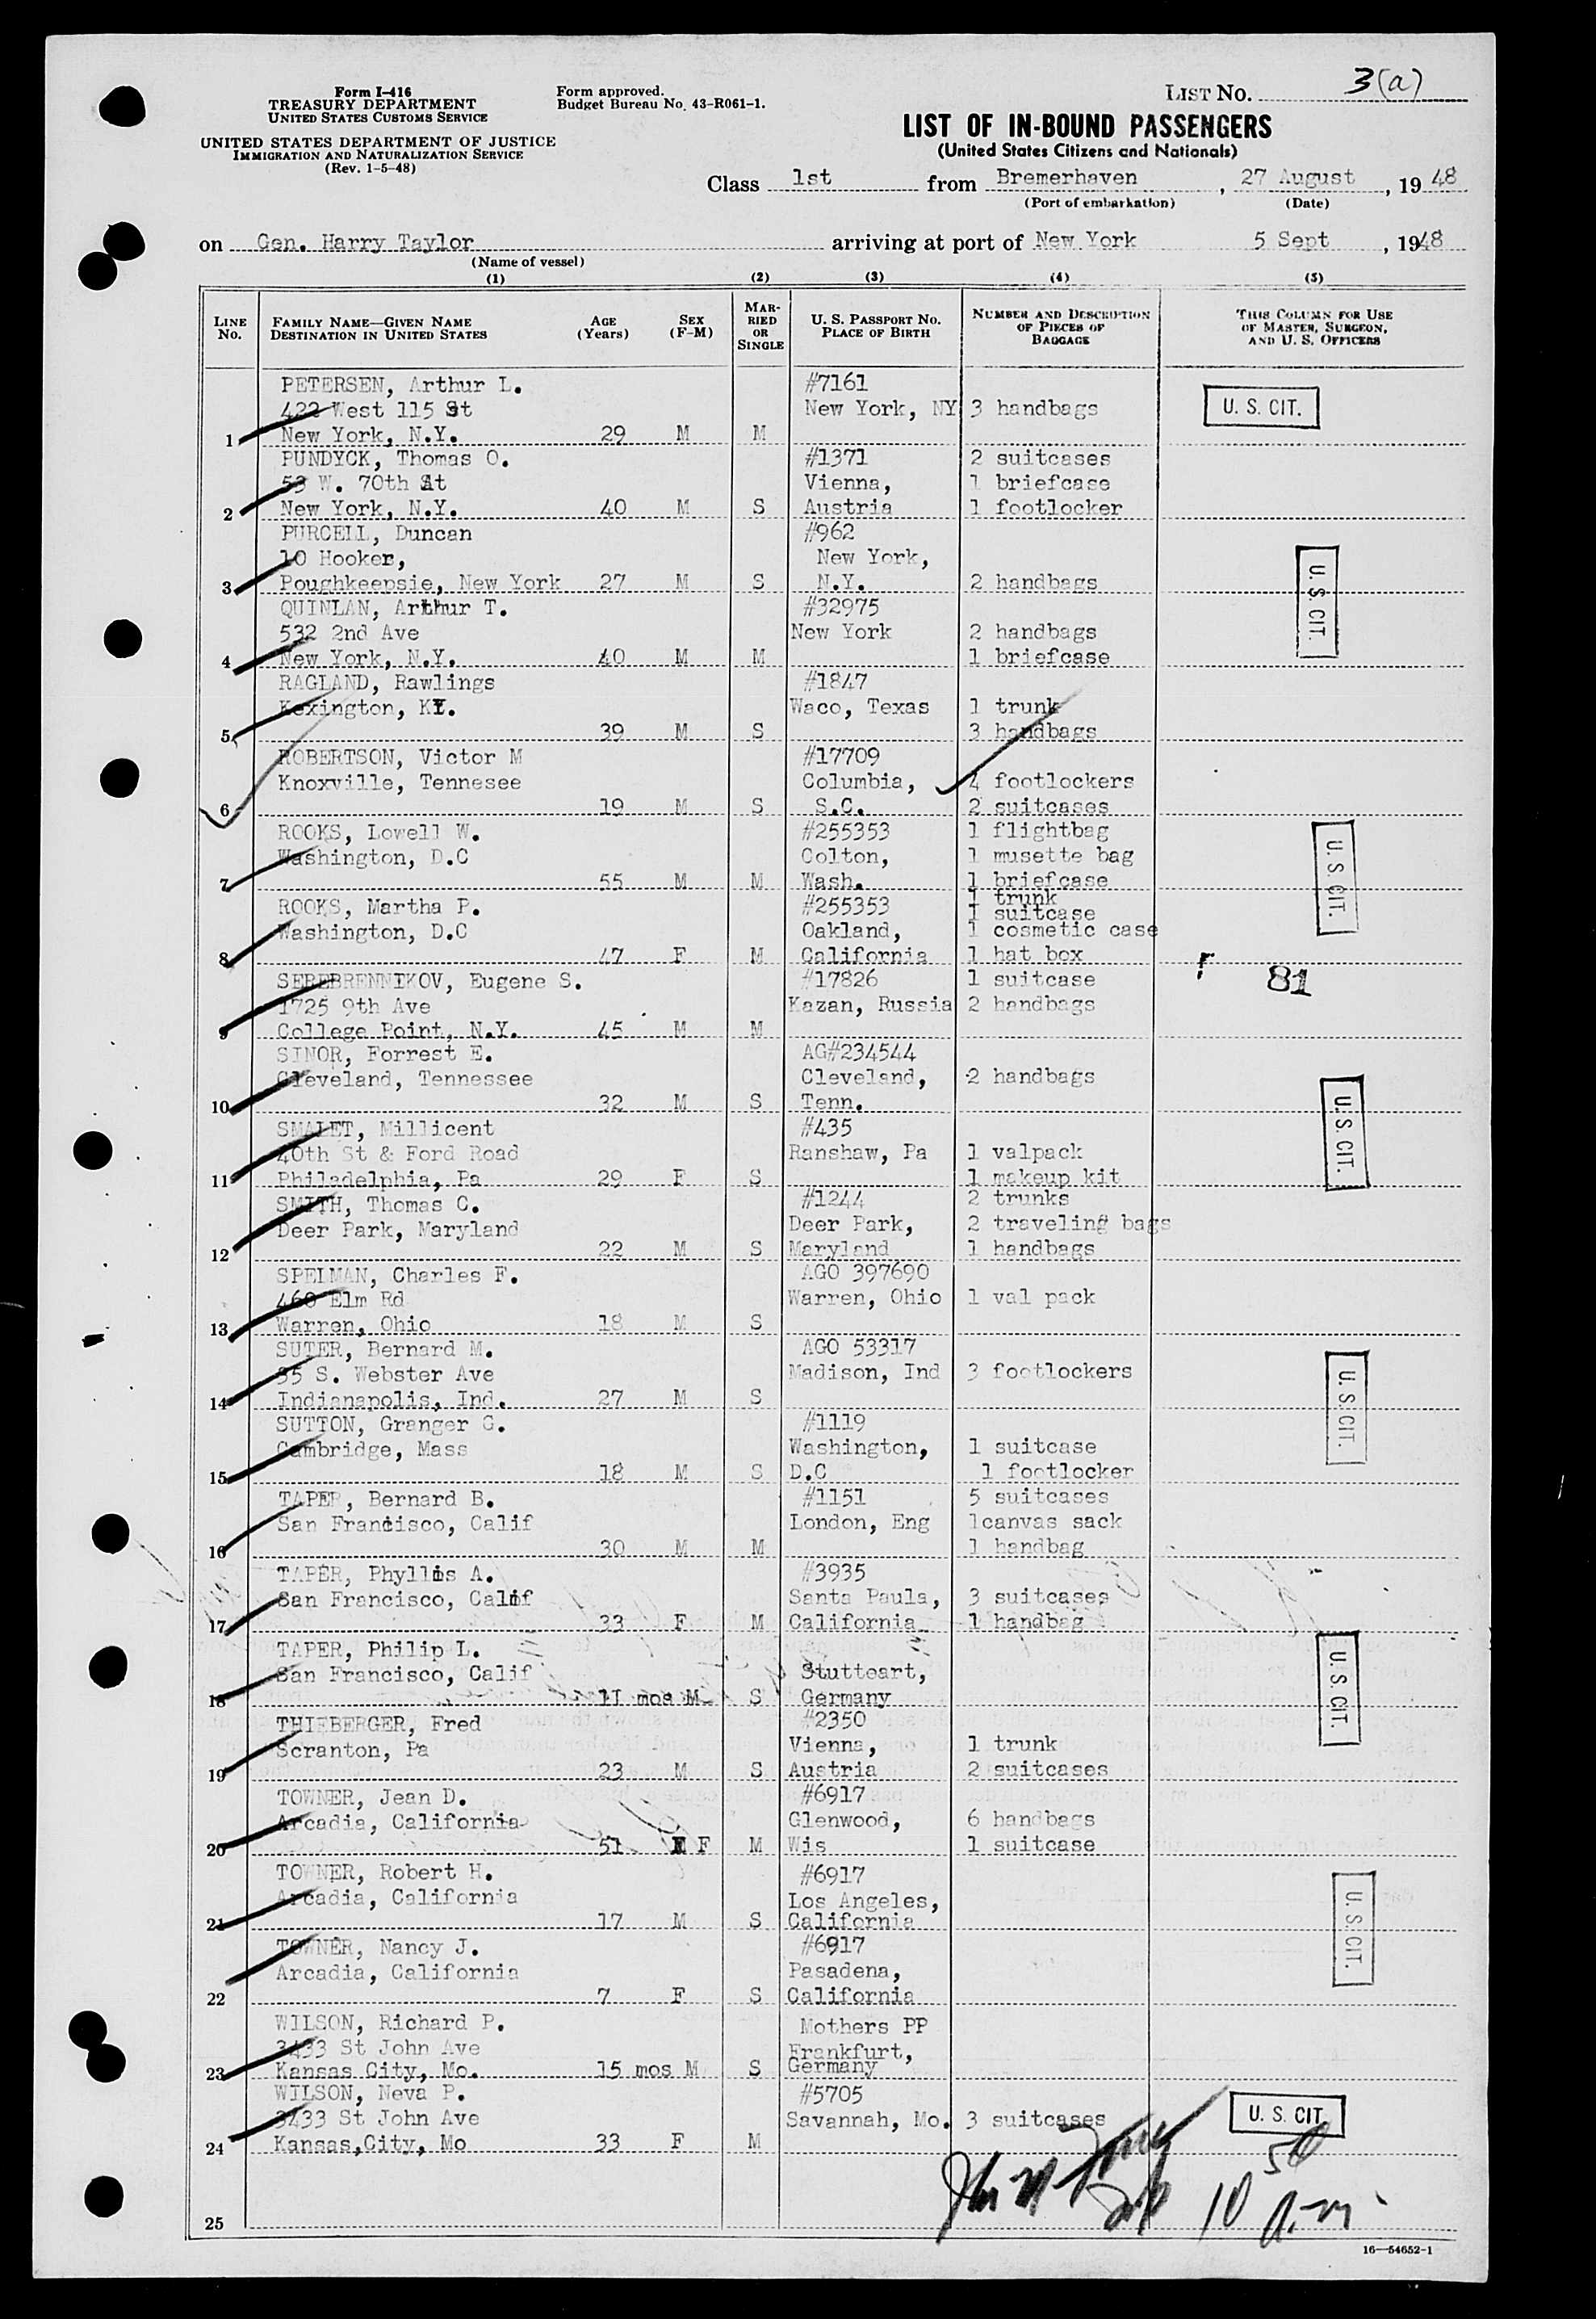 Form I-416
TREASURY DEPARTMENT
UNITED STATES CUSTOMS SERVICE
UNITED STATES DEPARTMENT OF JUSTICE
IMMIGRATION AND NATURALIZATION SERVICE
(Rev. 1-5-48)
Form approved.
Budget Bureau No. 43-R061-1.
LIST No. 3(a)
LIST OF IN-BOUND PASSENGERS
(United States Citizens and Nationals)
Class 1st from Bremerhaven, 27 August, 1948
(Port of embarkation) (Date)
on Gen. Harry Taylor arriving at port of New York 5 Sept, 1948
(Name of vessel)
(1) (2) (3) (4) (5)
LINE No.
FAMILY NAME—GIVEN NAME
DESTINATION IN UNITED STATES
AGE (Years)
SEX (F-M)
MARRIED OR SINGLE
U. S. PASSPORT NO.
PLACE OF BIRTH
NUMBER AND DESCRIPTION OF PIECES OF BAGGAGE
THIS COLUMN FOR USE OF MASTER, SURGEON, AND U. S. OFFICERS
PETERSEN, Arthur L. #7161
422 West 115 St New York, NY 3 handbags U. S. CIT.
1 New York, N.Y. 29 M M
PUNDYCK, Thomas O. #1371 2 suitcases
53 W. 70th St Vienna, 1 briefcase
2 New York, N.Y. 40 M S Austria 1 footlocker
PURCELL, Duncan #962
10 Hooker, New York,
3 Poughkeepsie, New York 27 M S N.Y. 2 handbags U. S. CIT.
QUINLAN, Arthur T. #32975
532 2nd Ave New York 2 handbags
4 New York, N.Y. 40 M M 1 briefcase
RAGLAND, Rawlings #1847
Kexington, KY. Waco, Texas 1 trunk
5 39 M S 3 handbags
ROBERTSON, Victor M #17709
Knoxville, Tennesee Columbia, 4 footlockers
6 19 M S S.C. 2 suitcases
ROOKS, Lowell W. #255353 1 flightbag
Washington, D.C Colton, 1 musette bag
7 55 M M Wash. 1 briefcase U. S. CIT.
1 trunk
ROOKS, Martha P. #255353 1 suitcase
Washington, D.C Oakland, 1 cosmetic case
8 47 F M California 1 hat box
SEREBRENNIKOV, Eugene S. #17826 1 suitcase 81
1725 9th Ave Kazan, Russia 2 handbags
9 College Point, N.Y. 45 M M
SINOR, Forrest E. AG#234544
Cleveland, Tennessee Cleveland, 2 handbags
10 32 M S Tenn. U. S. CIT.
SMALET, Millicent #435
40th St & Ford Road Ranshaw, Pa 1 valpack
11 Philadelphia, Pa 29 F S 1 makeup kit
SMITH, Thomas C. #1244 2 trunks
Deer Park, Maryland Deer Park, 2 traveling bags
12 22 M S Maryland 1 handbags
SPELMAN, Charles F. AGO 397690
460 Elm Rd Warren, Ohio 1 val pack
13 Warren, Ohio 18 M S
SUTER, Bernard M. AGO 53317
35 S. Webster Ave Madison, Ind 3 footlockers
14 Indianapolis, Ind. 27 M S U. S. CIT.
SUTTON, Granger G. #1119
Cambridge, Mass Washington, 1 suitcase
15 18 M S D.C 1 footlocker
TAPER, Bernard B. #1151 5 suitcases
San Francisco, Calif London, Eng 1canvas sack
16 30 M M 1 handbag
TAPER, Phyllis A. #3935
San Francisco, Calif Santa Paula, 3 suitcases
17 33 F M California 1 handbag
TAPER, Philip L.
San Francisco, Calif Stutteart,
18 11 mos M S Germany U. S CIT.
THIEBERGER, Fred #2350
Scranton, Pa Vienna, 1 trunk
19 23 M S Austria 2 suitcases
TOWNER, Jean D. #6917
Arcadia, California Glenwood, 6 handbags
20 51 F M Wis 1 suitcase
TOWNER, Robert H. #6917
Arcadia, California Los Angeles,
21 17 M S California U. S. CIT.
TOWNER, Nancy J. #6917
Arcadia, California Pasadena,
22 7 F S California
WILSON, Richard P. Mothers PP
3433 St John Ave Frankfurt,
23 Kansas City, Mo. 15 mos M S Germany
WILSON, Neva P. #5705
3433 St John Ave Savannah, Mo. 3 suitcases U. S. CIT
24 Kansas,City, Mo 33 F M
10 50 a.m.
25
16—54652-1